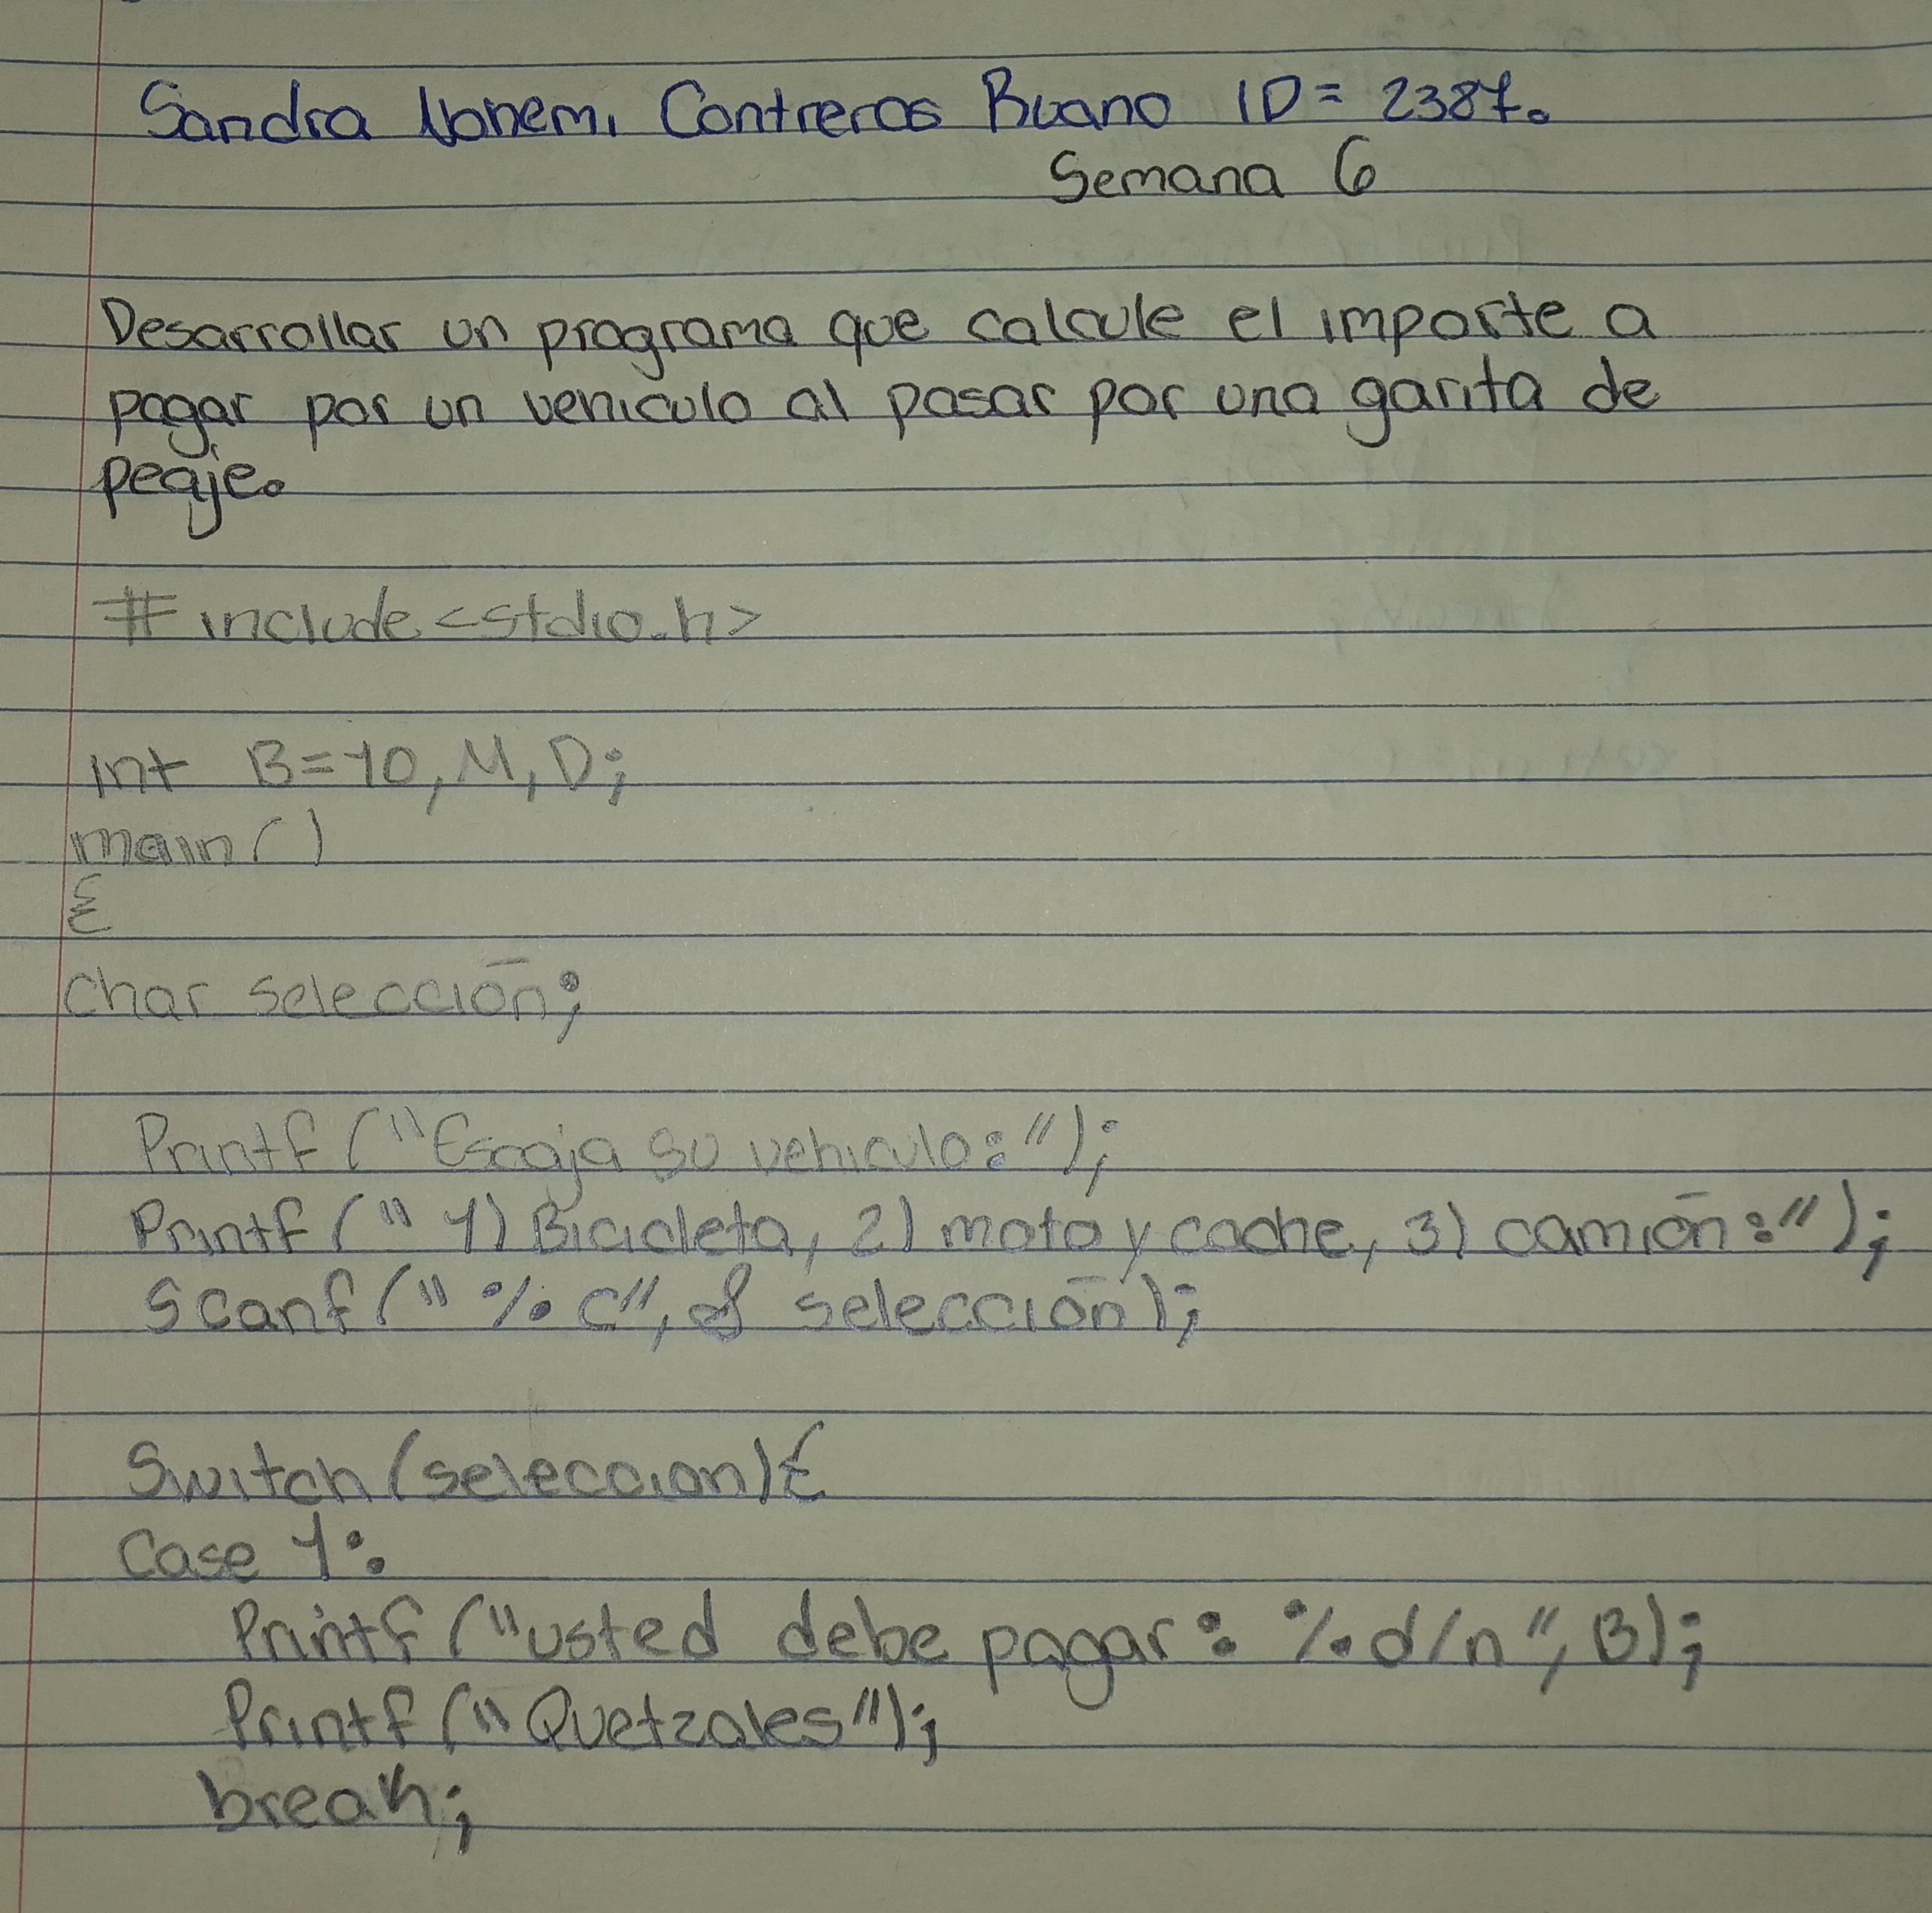 Sandra Nohemi Contreras Buano ID = 2387.
Semana 6
Desarrollar un programa que calcule el importe a
pagar por un vehiculo al pasar por una garita de
peaje.
# include <stdio.h>
int B=10, M, D;
main()
{
char selección;
Printf ("Escoja su vehiculo:");
Printf (" 1) Bicicleta, 2) moto y coche, 3) camión:");
Scanf (" %c", & selección);
Switch (seleccion){
Case 1:
Printf ("usted debe pagar: %d/n", B);
Printf ("Quetzales");
break;